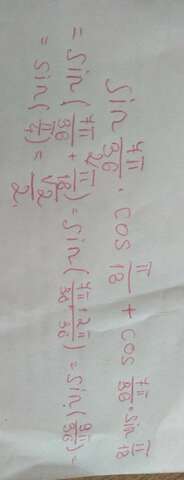 sin 7π/36 · cos π/18 + cos 7π/36 · sin π/18
= sin ( 7π/36 + π/18 ) = sin ( 7π+2π/36 ) = sin ( 9π/36 ) =
= sin ( π/4 ) = √2/2.